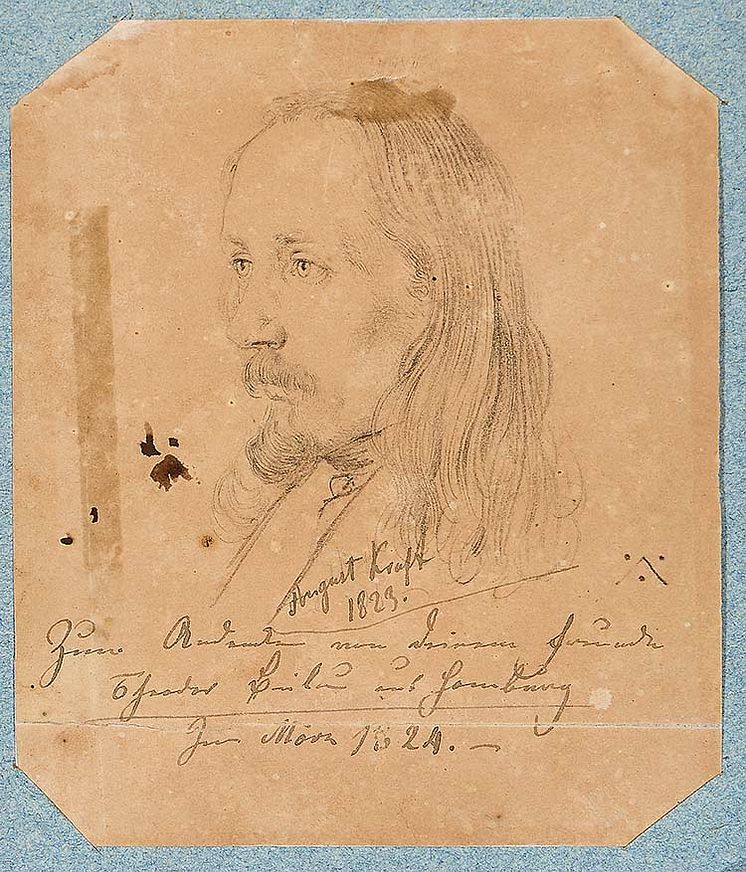 August Kraft
1823.
Zum Andenken von deinem Freunde
Theodor aus Hamburg
Im März 1824. —